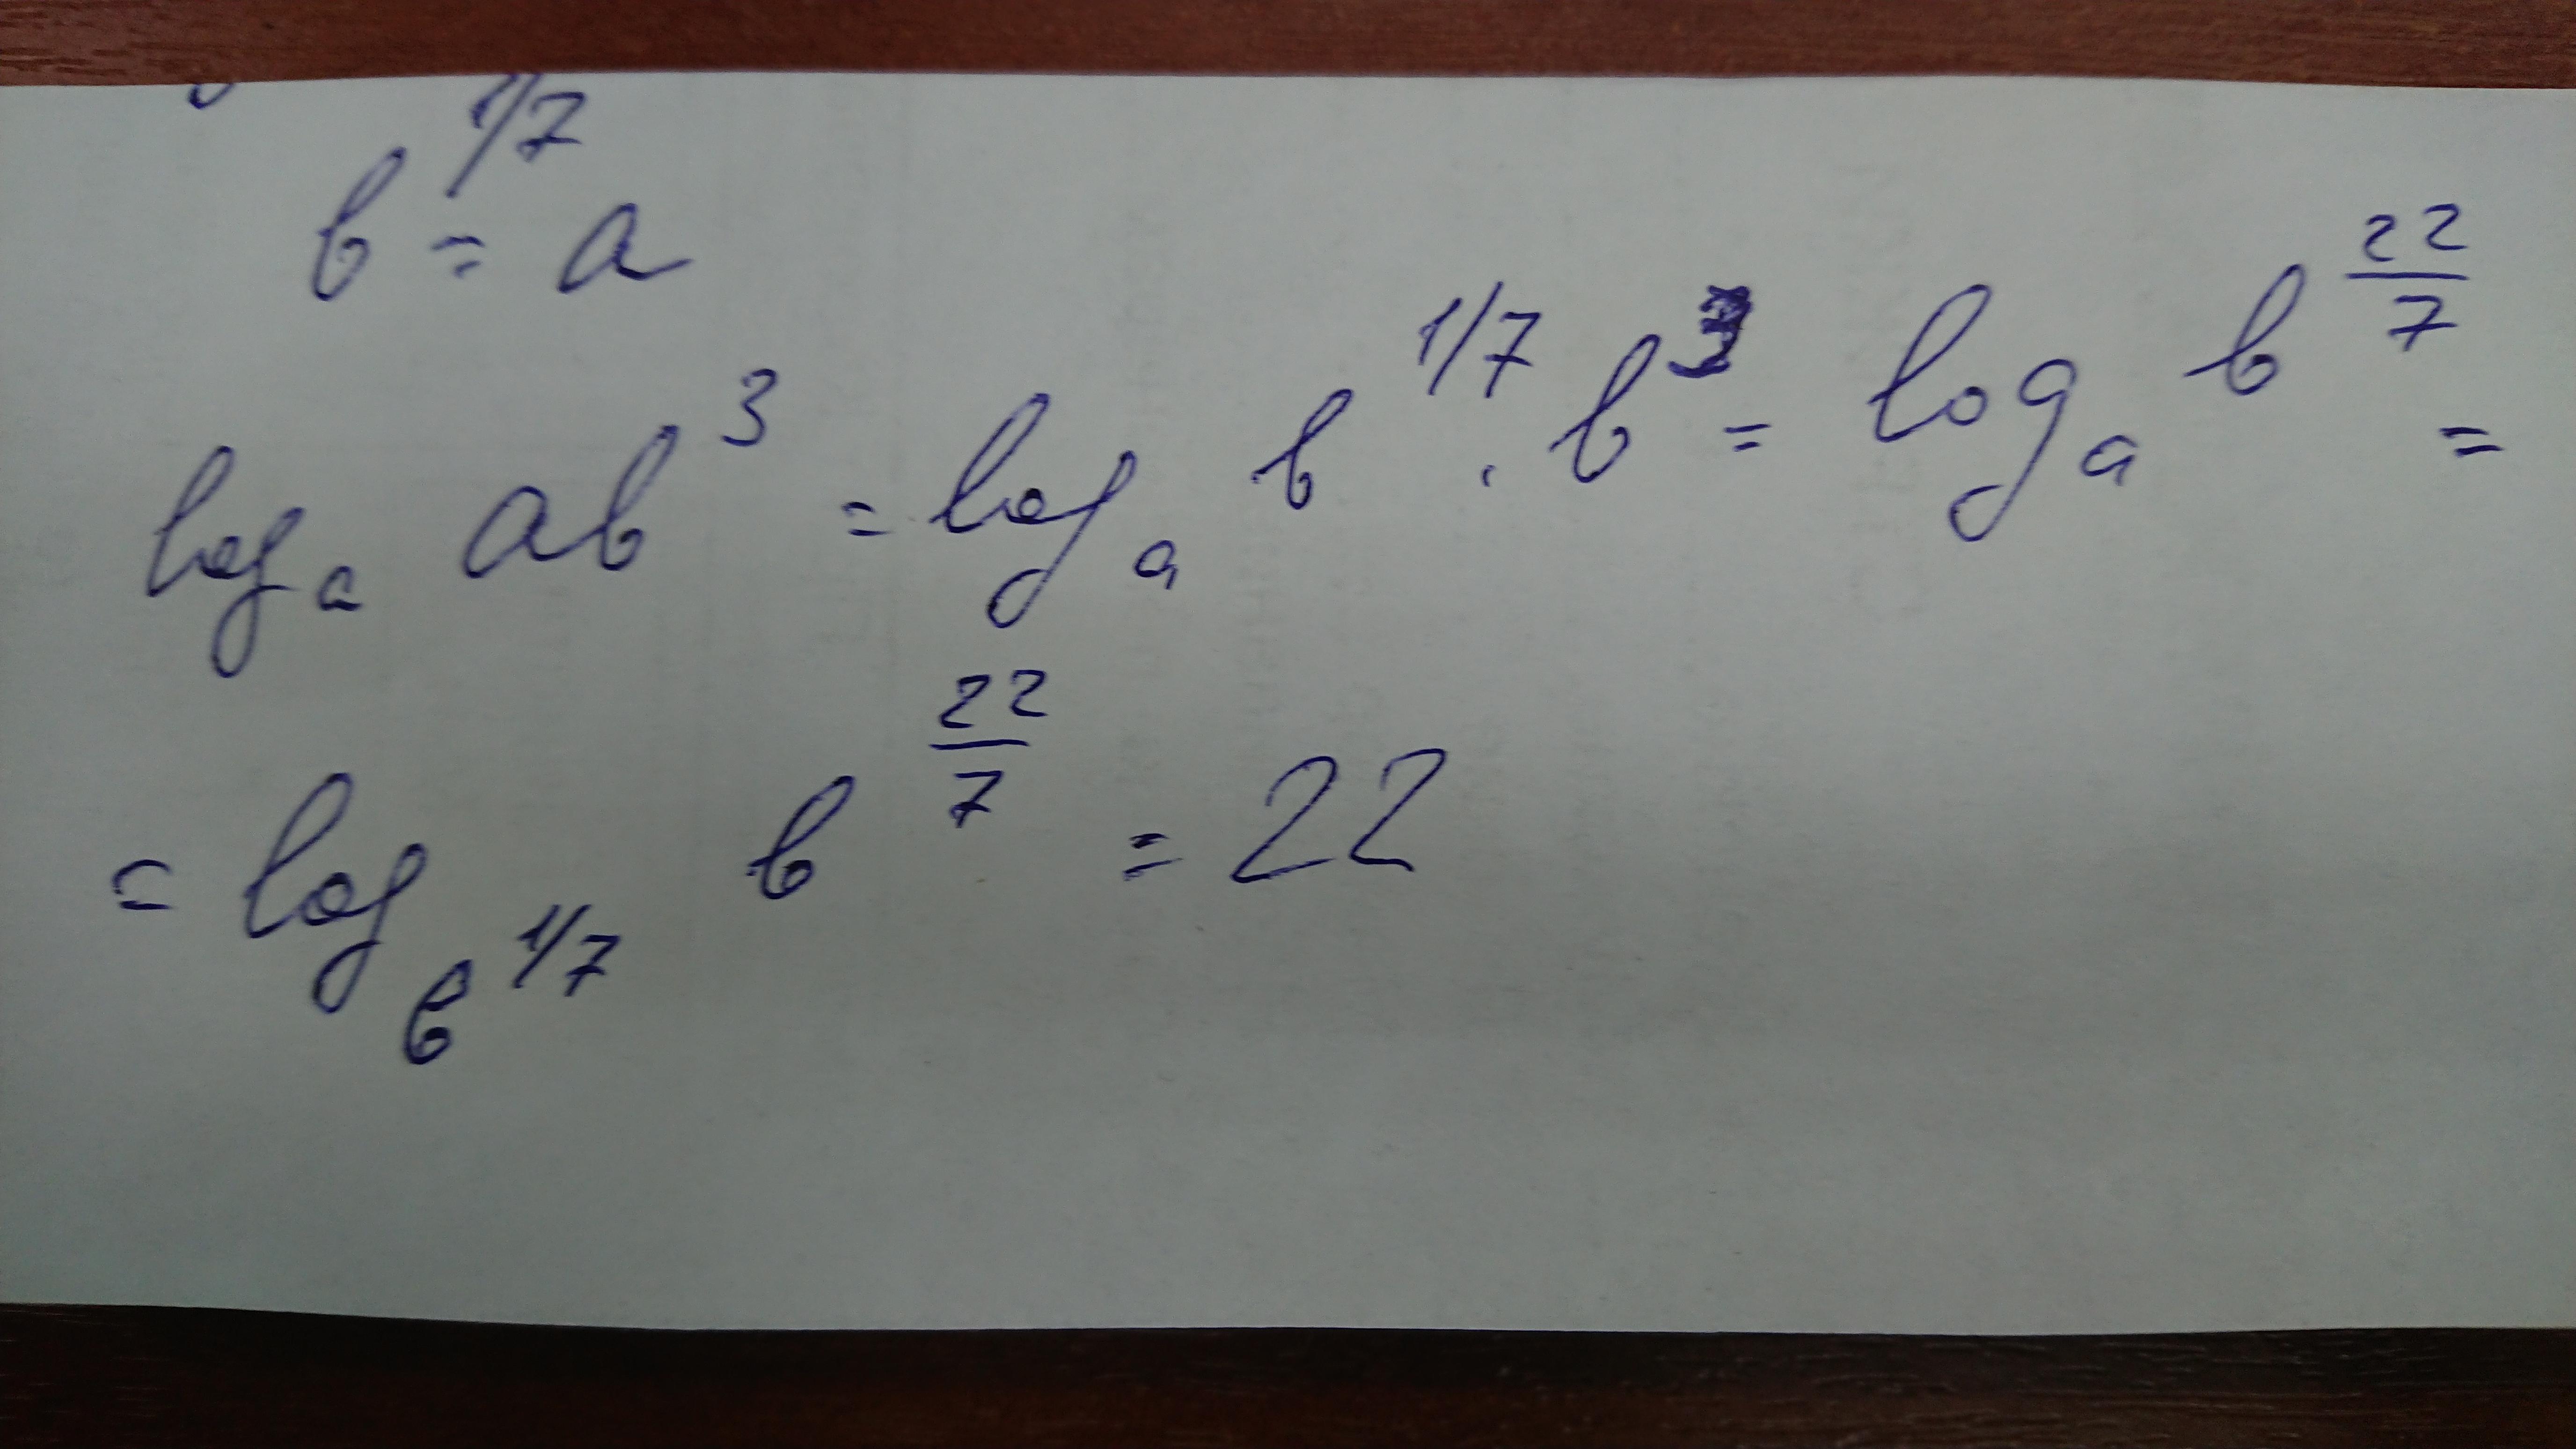 b^{1/7} = a
log_a ab^3 = log_a b^{1/7} · b^3 = log_a b^{22/7} =
= log_{b^{1/7}} b^{22/7} = 22